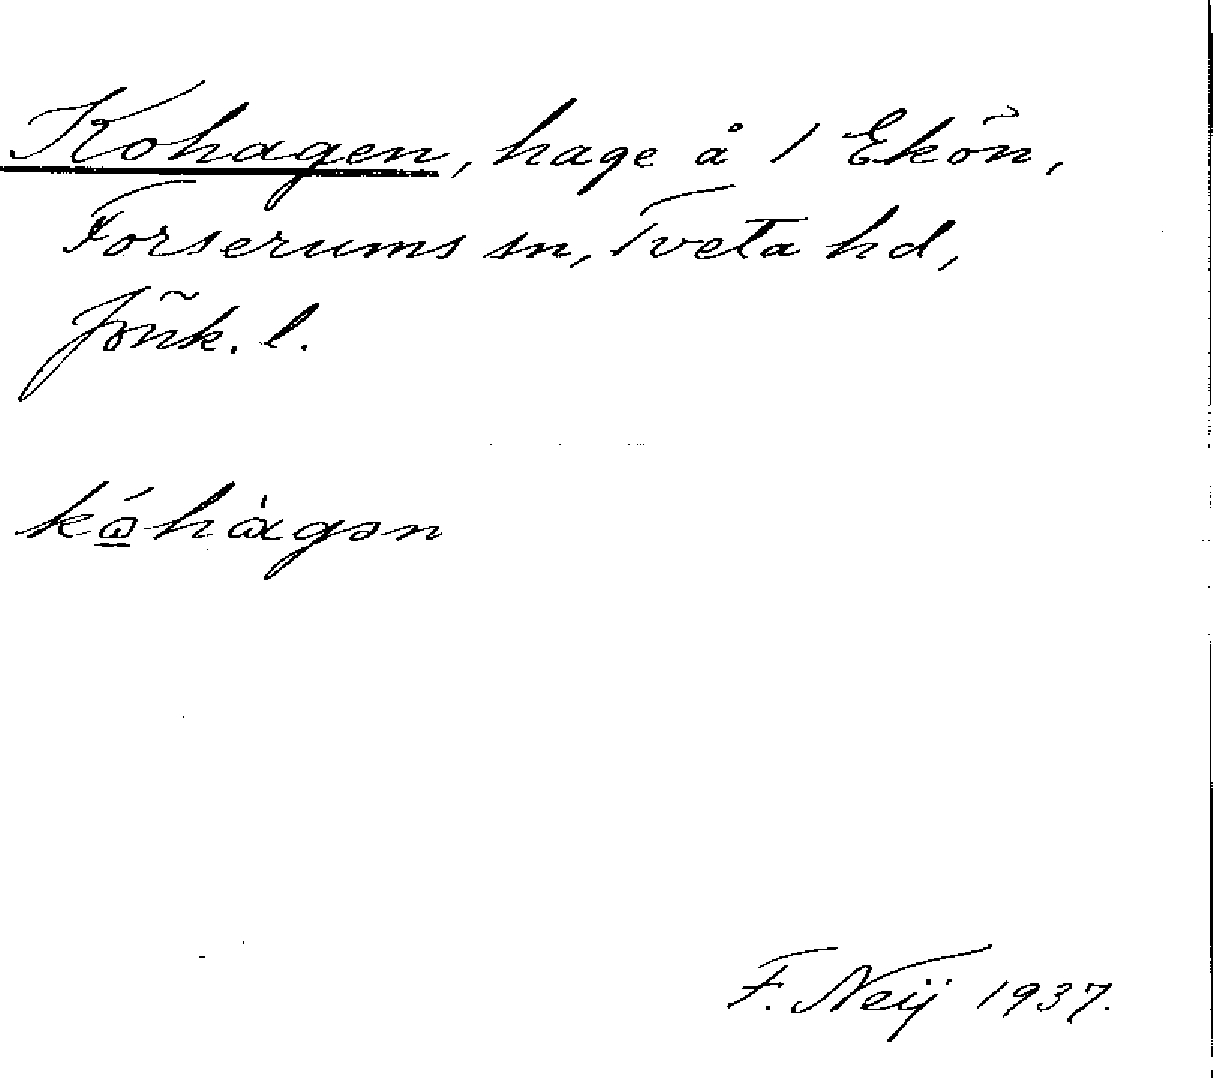 Kohagen, hage å 1 Ekön,
Forserums sn, Tveta hd,
Jönk. l.
F. Neij 1937.